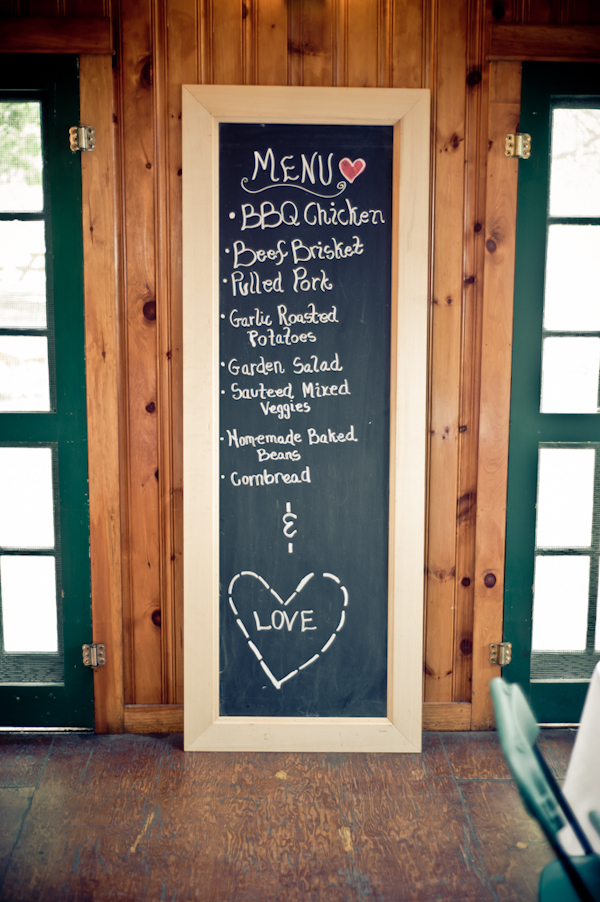 MENU
• BBQ Chicken
• Beef Brisket
• Pulled Pork
• Garlic Roasted
Potatoes
• Garden Salad
• Sauteed Mixed
Veggies
• Hom-emade Baked
Beans
• Cornbread
&
LOVE